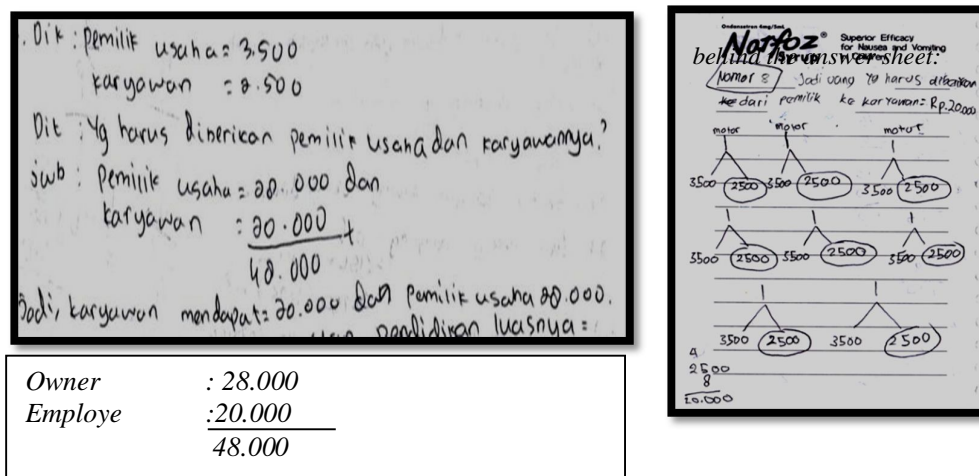 Dik : Pemilik usaha = 3.500
karyawan = 2.500
Dit : Yg harus diberikan pemilik usaha dan karyawannya?
Jwb : Pemilik usaha = 28.000 dan
karyawan = 20.000 +
48.000
Jadi, karyawan mendapat = 20.000 dan pemilik usaha 28.000.
pendidikan luasnya =
Owner : 28.000
Employe :20.000
48.000
Ondansetron 4mg/5mL
Narfoz®
Syrup
Superior Efficacy
for Nausea and Vomiting
in Children
behind the answer sheet:
Nomor 8 Jadi uang yg harus diberikan
ke dari pemilik ke karyawan = Rp.20.000
motor motor motor
3500 2500 3500 2500 3500 2500
3500 2500 3500 2500 3500 2500
3500 2500 3500 2500
4
2500
8
20.000